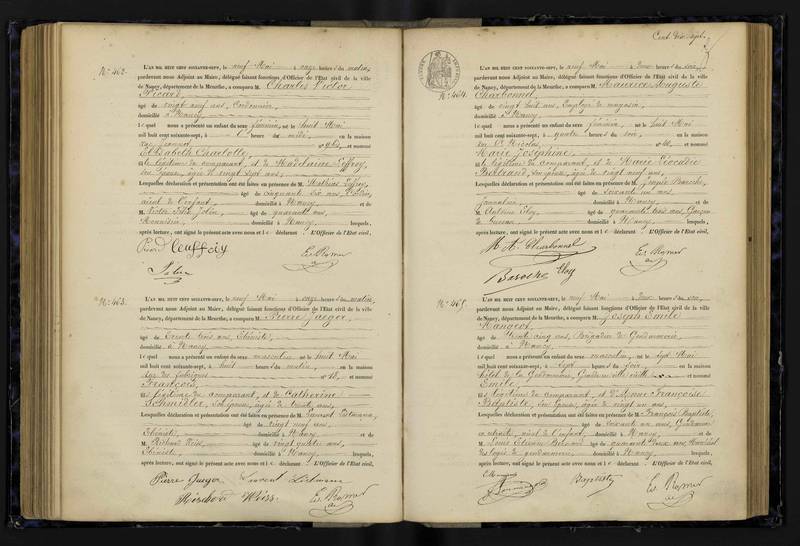 No. 462.
L'AN MIL HUIT CENT SOIXANTE-SEPT, le neuf Mai à onze heures du matin,
pardevant nous Adjoint au Maire, délégué faisant fonctions d'Officier de l'Etat civil de la ville
de Nancy, département de la Meurthe, a comparu M. Charles Victor
Picard
âgé de vingt neuf ans, Cordonnier,
domicilié à Nancy
lequel nous a présenté un enfant du sexe féminin, né le huit Mai
mil huit cent soixante-sept, à heure du midi, en la maison
rue et nommé
Elisabeth Charlotte,
née légitime du comparant, et de Madelaine Leffroy,
son épouse, âgée de vingt sept ans,
Lesquelles déclaration et présentation ont été faites en présence de M. Mathias Leffroy,
âgé de cinquante six ans,
aïeul de l'enfant, domicilié à Nancy et de
M. Victor âgé de quarante ans,
domicilié à Nancy lesquels,
après lecture, ont signé le présent acte avec nous et le déclarant. L'Officier de l'Etat civil,
Picard
No. 463.
L'AN MIL HUIT CENT SOIXANTE-SEPT, le neuf Mai à onze heures du matin,
pardevant nous Adjoint au Maire, délégué faisant fonctions d'Officier de l'Etat civil de la ville
de Nancy, département de la Meurthe, a comparu M. Pierre Jaeger,
âgé de trente trois ans, Ebéniste,
domicilié à Nancy
lequel nous a présenté un enfant du sexe masculin né le huit Mai
mil huit cent soixante-sept, à huit heures du matin, en la maison
rue des fabriques no 18, et nommé
François,
fils légitime du comparant, et de Catherine
Schmidler, son épouse, âgée de trente ans,
Lesquelles déclaration et présentation ont été faites en présence de M. Laurent
âgé de vingt neuf ans,
Ebéniste, domicilié à Nancy et de
M. Richard Weiss, âgé de vingt quatre ans,
Ebéniste, domicilié à Nancy, lesquels,
après lecture, ont signé le présent acte avec nous et le déclarant. L'Officier de l'Etat civil,
Pierre Jaeger Laurent
Richard Weiss.
Cent dix sept.
No. 464.
L'AN MIL HUIT CENT SOIXANTE-SEPT, le neuf Mai à deux heures du soir,
pardevant nous Adjoint au Maire, délégué faisant fonctions d'Officier de l'Etat civil de la ville
de Nancy, département de la Meurthe, a comparu M. Maurice Auguste
Charbonnel,
âgé de vingt huit ans, Employé de magasin,
domicilié à Nancy
lequel nous a présenté un enfant du sexe féminin, né le huit Mai
mil huit cent soixante-sept, à quatre heures du soir, en la maison
rue St. Nicolas, et nommé
Marie Joséphine,
née légitime du comparant, et de Marie Léocadie
son épouse, âgée de vingt neuf ans,
Lesquelles déclaration et présentation ont été faites en présence de M.
âgé de soixante un ans,
domicilié à Nancy et de
M. Antoine Eloy, âgé de quarante trois ans, Garçon
de bureau domicilié à Nancy, lesquels,
après lecture, ont signé le présent acte avec nous et le déclarant. L'Officier de l'Etat civil,
M. A. Charbonnel
Eloy
No. 465.
L'AN MIL HUIT CENT SOIXANTE-SEPT, le neuf Mai à deux heures du soir,
pardevant nous Adjoint au Maire, délégué faisant fonctions d'Officier de l'Etat civil de la ville
de Nancy, département de la Meurthe, a comparu M. Joseph Emile
Mangeot,
âgé de trente cinq ans, Brigadier de Gendarmerie,
domicilié à Nancy
lequel nous a présenté un enfant du sexe masculin, né le sept Mai
mil huit cent soixante-sept, à sept heures du soir, en la maison
hôtel de la Gendarmerie, et nommé
Emile,
fils légitime du comparant, et d'Anne Françoise
Baptiste, son épouse, âgée de vingt un ans,
Lesquelles déclaration et présentation ont été faites en présence de M. François Baptiste,
âgé de soixante un ans, Gendarme
en retraite, aïeul de l'enfant, domicilié à Nancy, et de
M. Louis Etienne âgé de quarante deux ans, Maréchal
des logis de gendarmerie, domicilié à Nancy, lesquels,
après lecture, ont signé le présent acte avec nous et le déclarant. L'Officier de l'Etat civil,
Baptiste